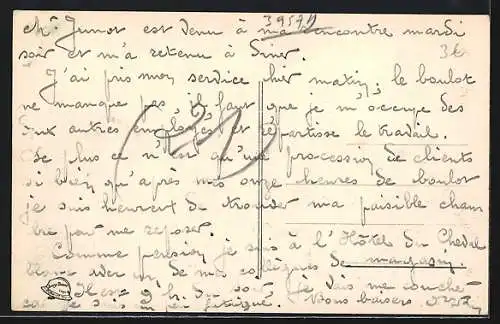 39571
Mr. Junot est venu à ma rencontre mardi
3k
soir et m'a retenu à diner.
J'ai pris mon service hier matin, le boulot
ne manque pas, il faut que je m'occupe des
deux autres employés et répartisse le travail.
De plus ce n'est qu'une procession de clients
si bien qu'après mes onze heures de boulot
je suis heureux de trouver ma paisible cham
bre pour me reposer.
Comme pension je suis à l'Hôtel du Cheval
blanc avec un de mes collègues de magasin.
Il est 9 h. du soir, je vais me coucher
car je suis un peu fatigué. Bons baisers